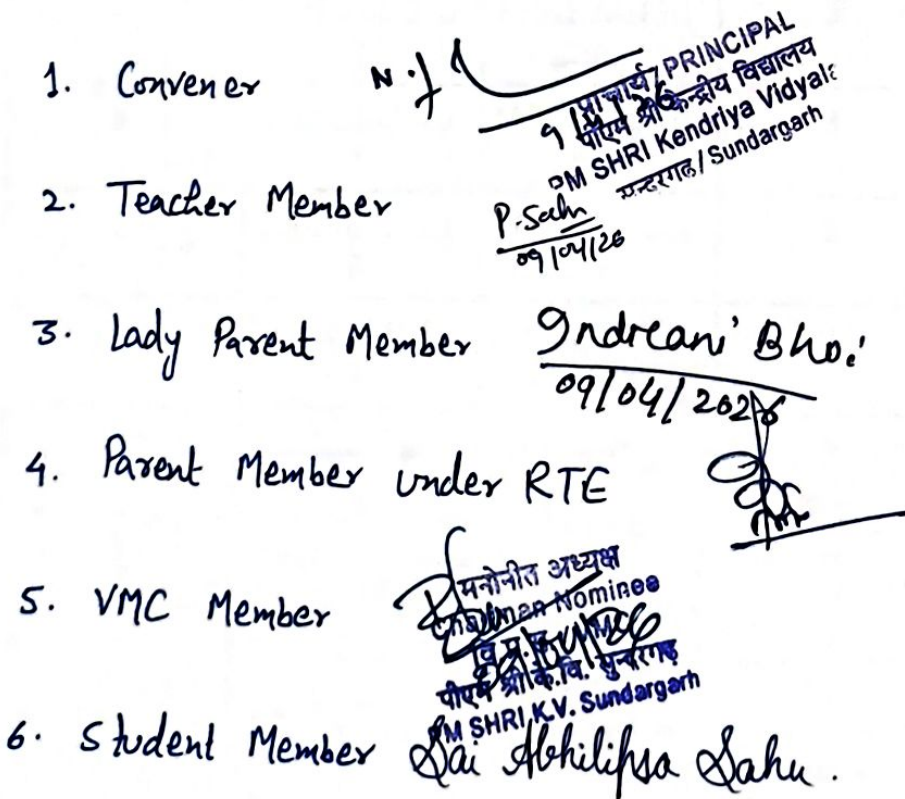 1. Convener
प्राचार्य/PRINCIPAL
पीएम श्री केन्द्रीय विद्यालय
PM SHRI Kendriya Vidyala
सुन्दरगढ/Sundargarh
2. Teacher Member P. Sahu
09/04/26
3. Lady Parent Member Indreani Bhoi
09/04/2026
4. Parent Member under RTE
5. VMC Member
मनोनीत अध्यक्ष
Chairman Nominee
पीएम श्री के.वि. सुन्दरगढ़
PM SHRI K.V. Sundargarh
6. Student Member Sai Abhilipsa Sahu.